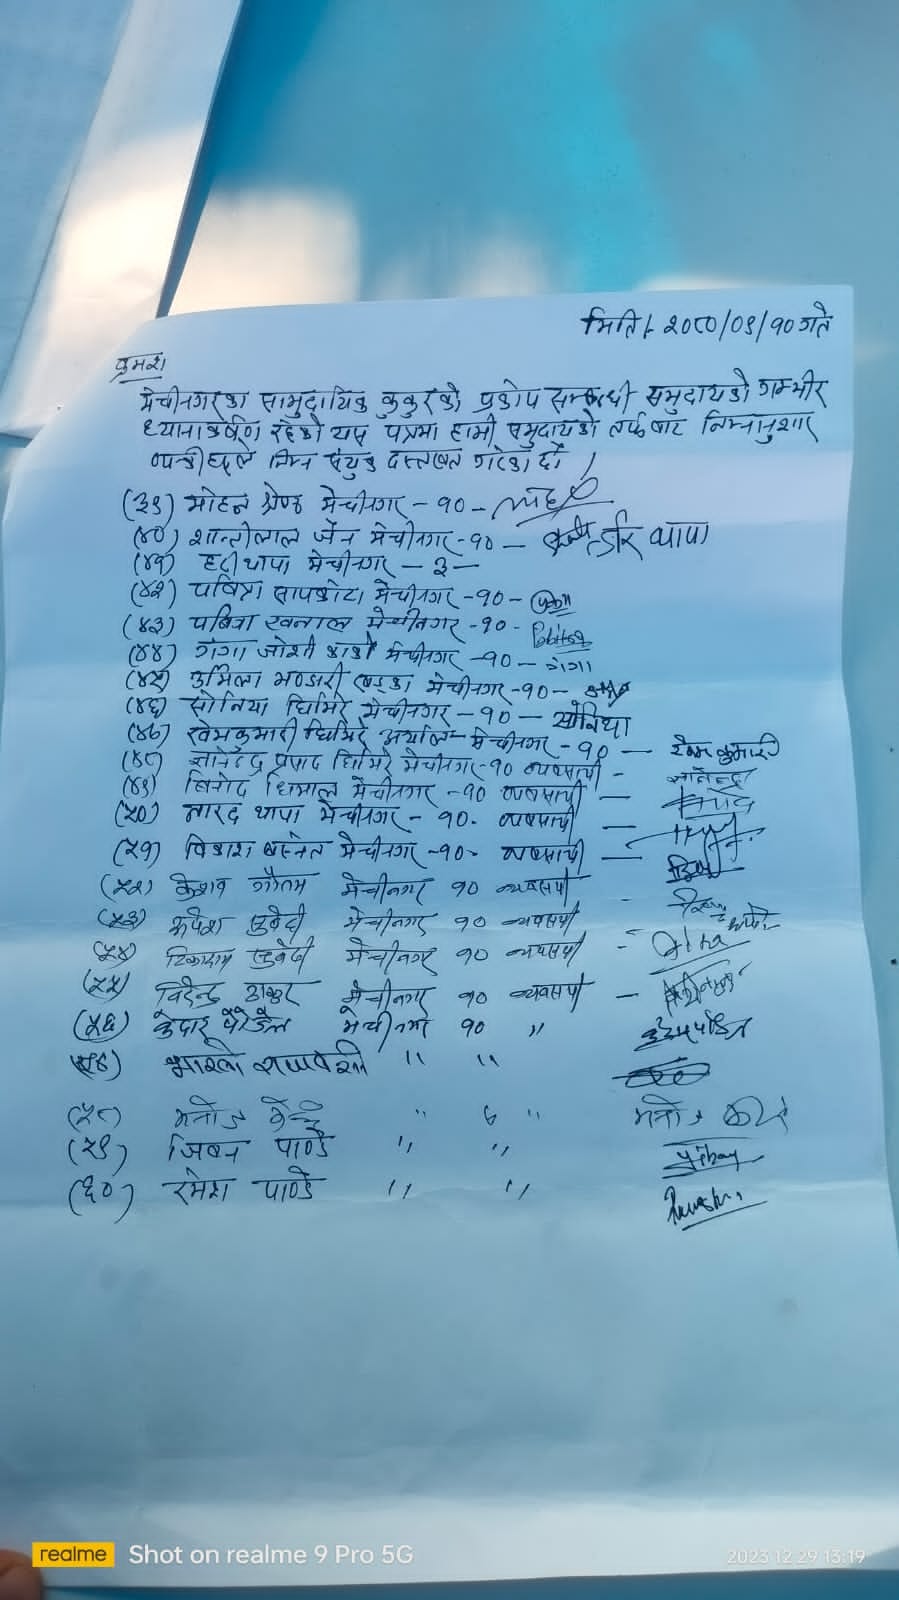 मिति:- २०८०/०९/१० गते
क्रमश
मेचीनगरका सामुदायिक कुकुरको प्रकोप सम्बन्धी समुदायको गम्भीर
ध्यानाकर्षण रहेको यस पत्रमा हामी समुदायको तर्फ बाट निम्नानुशार
निम्न संयुक्त दस्तखत गरेका छौं।
(३९) मोहन श्रेष्ठ मेचीनगर - १० -
(४०) शान्तीलाल जैन मेचीनगर - १० -
(४१) हरी थापा मेचीनगर - ३ - थापा
(४२) पवित्रा सापकोटा मेचीनगर - १० -
(४३) पबित्रा खनाल मेचीनगर - १० - Pabitra
(४४) गंगा जोशी कार्की मेचीनगर - १० - गंगा
(४५) उर्मिला भण्डारी खड्का मेचीनगर - १० -
(४६) सोनिया घिमिरे मेचीनगर - १० - सोनिया
(४७) खेमकुमारी घिमिरे अर्याल - मेचीनगर - १० - खेम कुमारी
(४८) ज्ञानेन्द्र प्रसाद घिमिरे मेचीनगर - १० व्यवसायी - ज्ञानेन्द्र
(४९) बिनोद धिमाल मेचीनगर - १० व्यवसायी -
(५०) नारद थापा मेचीनगर - १०- व्यवसायी -
(५१) विकाश बस्नेत मेचीनगर - १०- व्यवसायी -
(५२) केशव गौतम मेचीनगर १० व्यवसायी -
(५३) सुवेदी मेचीनगर १० व्यवसायी
(५४) टिकाराम सुवेदी मेचीनगर १० व्यवसायी -
(५५) विरेन्द्र ठाकुर मेचीनगर १० व्यवसायी -
(५६) केदार पौडेल मेचीनगर १० "
(५७) " "
(५८) मनोज " " मनोज
(५९) जिबन पाण्डे " " Jiban
(६०) रमेश पाण्डे " "
realme Shot on realme 9 Pro 5G
2023.12.29 13:19